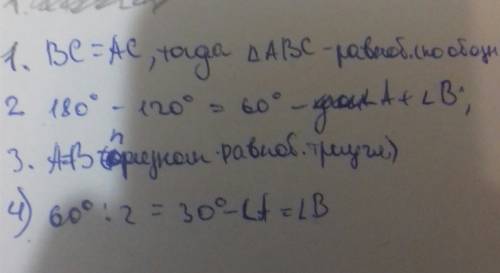 1. BC = AC, тогда △ABC - равноб. (по обозн
2 180° - 120° = 60° - A + ∠B;
3. A=B (признак равноб. треуг.)
4) 60° : 2 = 30° - ∠A = ∠B